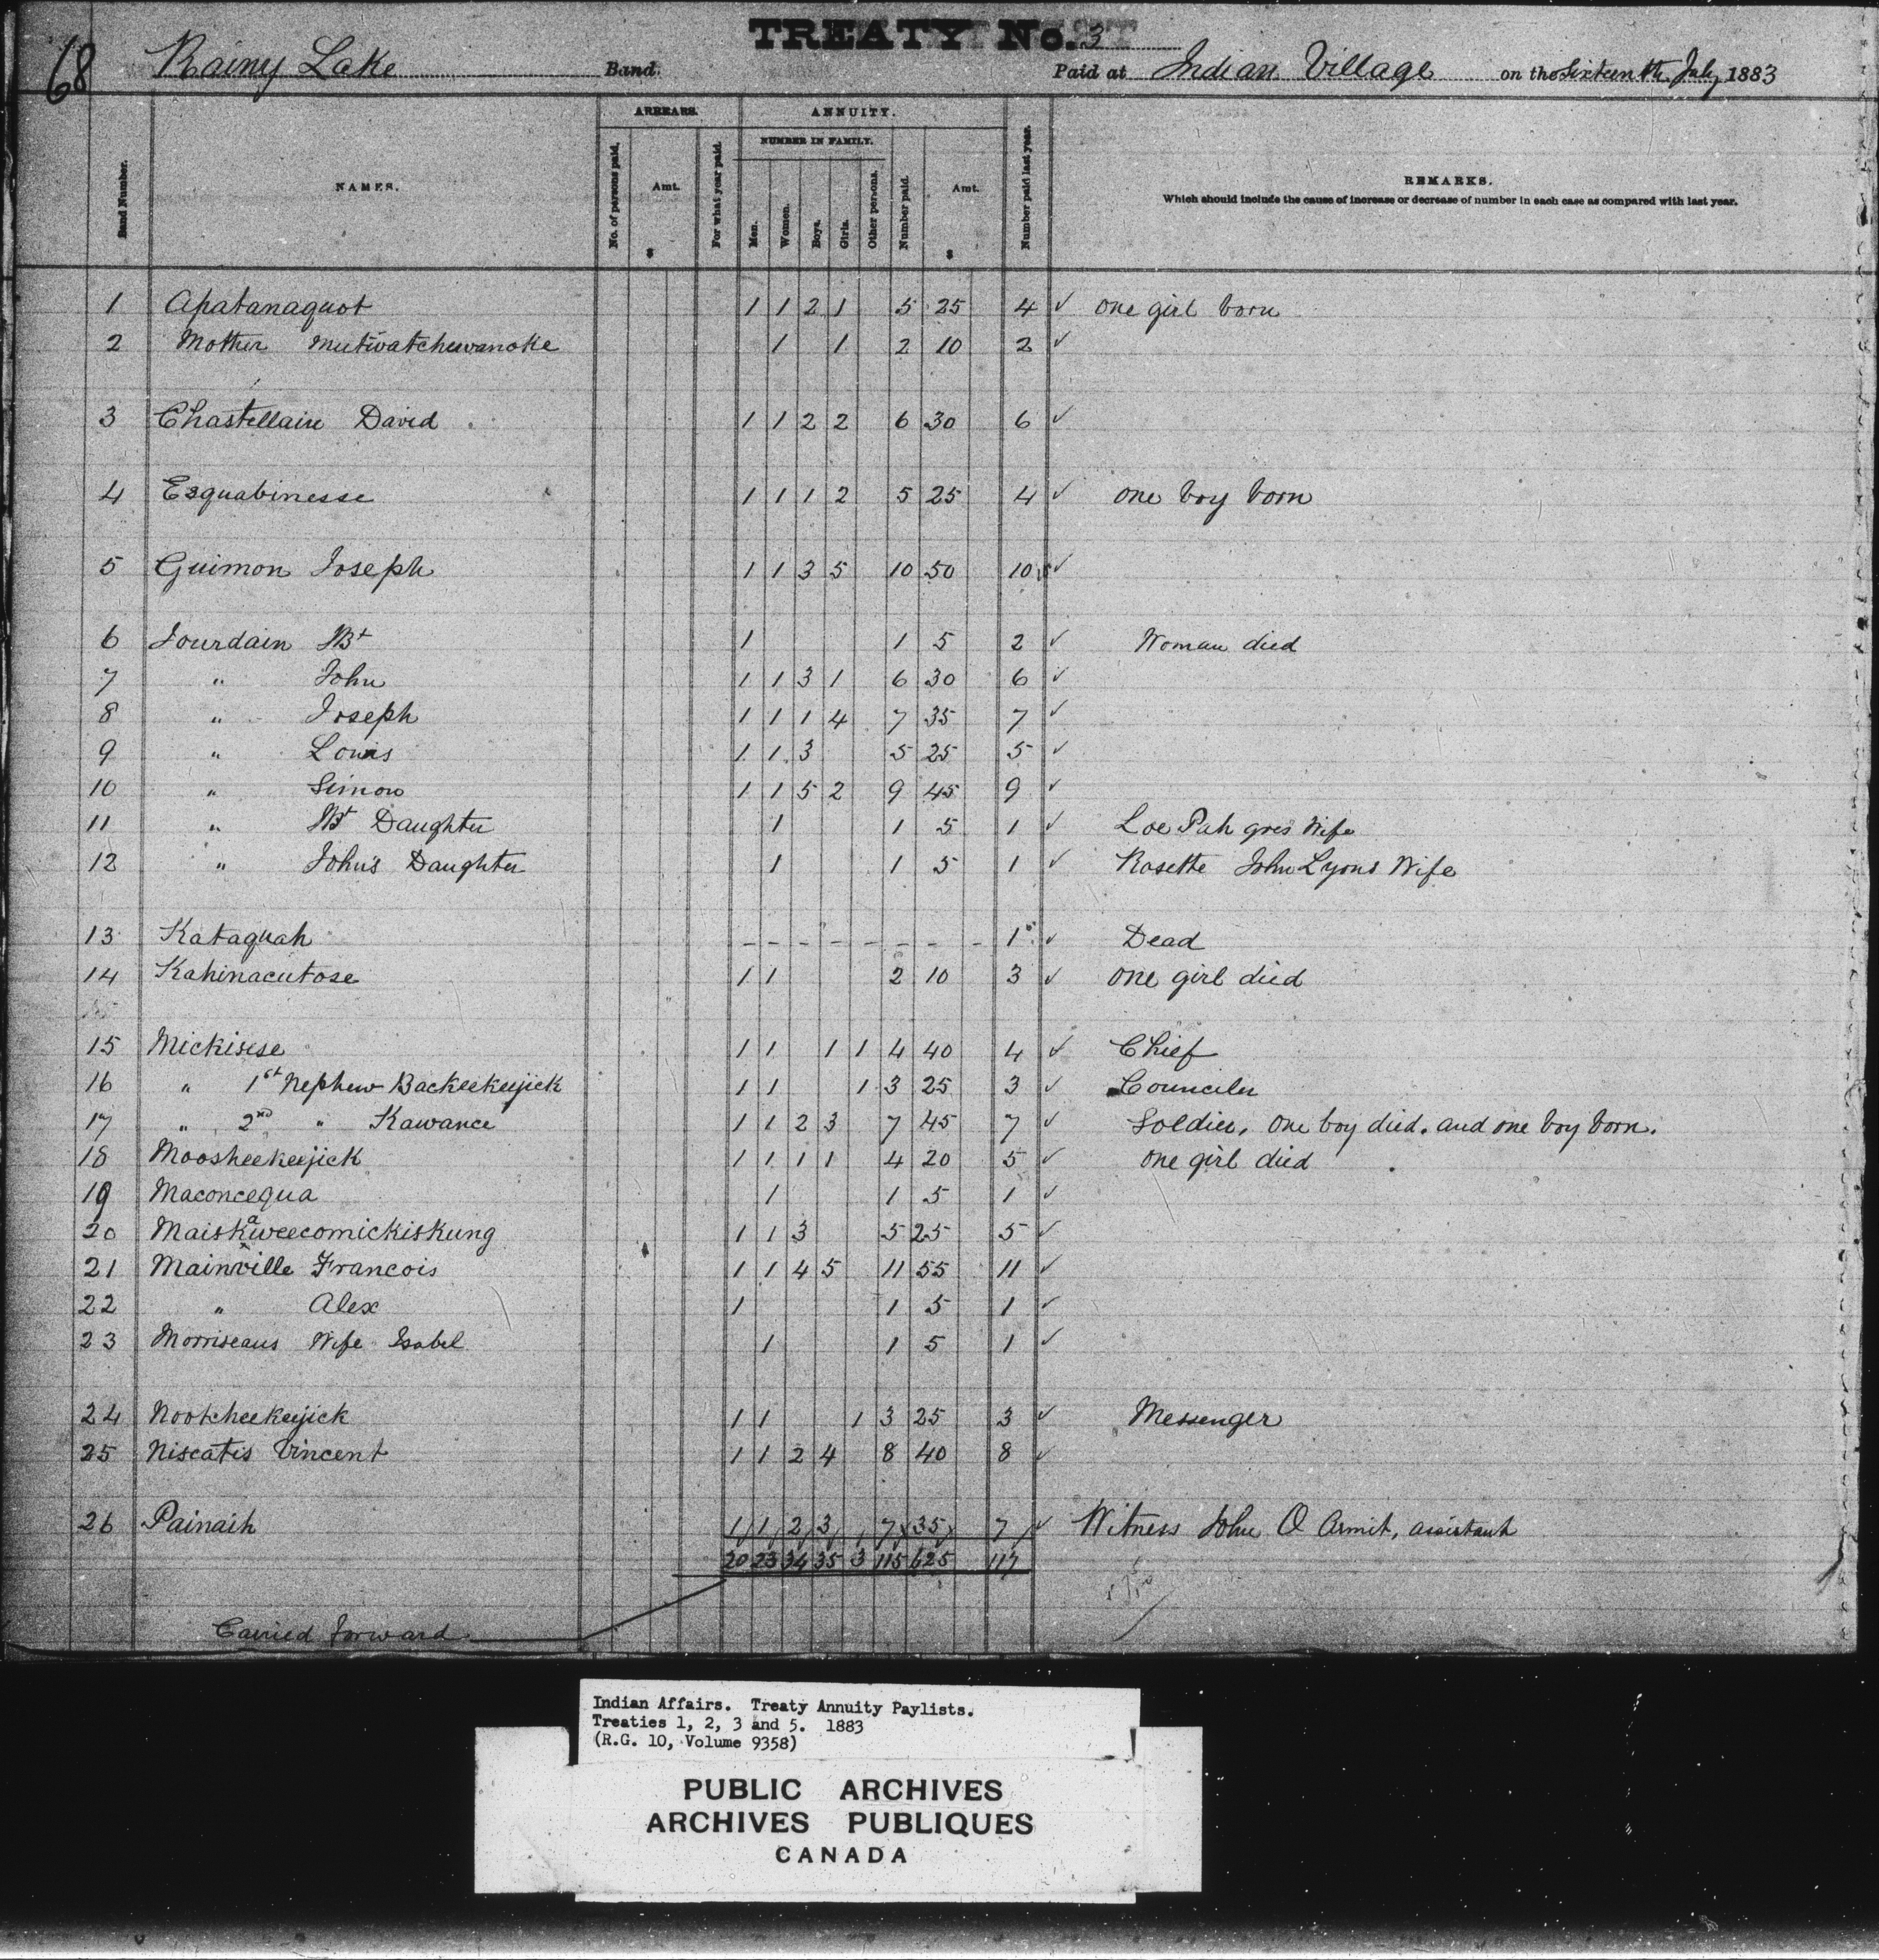 68
TREATY No. 3
Rainy Lake Band. Paid at Indian Village on the Sixteenth July 1883
ARREARS. ANNUITY.
NUMBER IN FAMILY.
Band Number. NAMES. No. of persons paid. Amt. $ For what year paid. Men. Women. Boys. Girls. Other persons. Number paid. Amt. $ Number paid last year.
REMARKS.
Which should include the cause of increase or decrease of number in each case as compared with last year.
1 Apatanaquot 1 1 2 1 5 25 4 ✓ one girl born
2 Mother Mutwatchewanoke 1 1 2 10 2 ✓
3 Chastellain David 1 1 2 2 6 30 6 ✓
4 Esquabinesse 1 1 1 2 5 25 4 ✓ one boy born
5 Guimon Joseph 1 1 3 5 10 50 10 ✓
6 Jourdain Bt 1 1 5 2 ✓ Woman died
7 " John 1 1 3 1 6 30 6 ✓
8 " Joseph 1 1 1 4 7 35 7 ✓
9 " Louis 1 1 3 5 25 5 ✓
10 " Simon 1 1 5 2 9 45 9 ✓
11 " Bt Daughter 1 1 5 1 ✓ Loe Pah gres Wife
12 " John's Daughter 1 1 5 1 ✓ Rosette John Lyons Wife
13 Kataquah - - - - - - - - 1 ✓ Dead
14 Kahinacutose 1 1 2 10 3 ✓ one girl died
15 Mickisese 1 1 1 1 4 40 4 ✓ Chief
16 " 1st Nephew Backeekeejick 1 1 1 3 25 3 ✓ Counciler
17 " 2nd " Kawance 1 1 2 3 7 45 7 ✓ Soldier, one boy died. and one boy born.
18 Moosheekeejick 1 1 1 1 4 20 5 ✓ one girl died
19 Maconcequa 1 1 5 1 ✓
20 Maiskaweecomickiskung 1 1 3 5 25 5 ✓
21 Mainville Francois 1 1 4 5 11 55 11 ✓
22 " Alex 1 1 5 1 ✓
23 Morriseaus Wife Isabel 1 1 5 1 ✓
24 Nootcheekeejick 1 1 1 3 25 3 ✓ Messenger
25 Niscatis Vincent 1 1 2 4 8 40 8 ✓
26 Painaih 1 1 2 3 7 35 7 ✓ Witness John O Armit, assistant
20 23 34 35 3 115 625 117
Carried forward
Indian Affairs. Treaty Annuity Paylists.
Treaties 1, 2, 3 and 5. 1883
(R.G. 10, Volume 9358)
PUBLIC ARCHIVES
ARCHIVES PUBLIQUES
CANADA